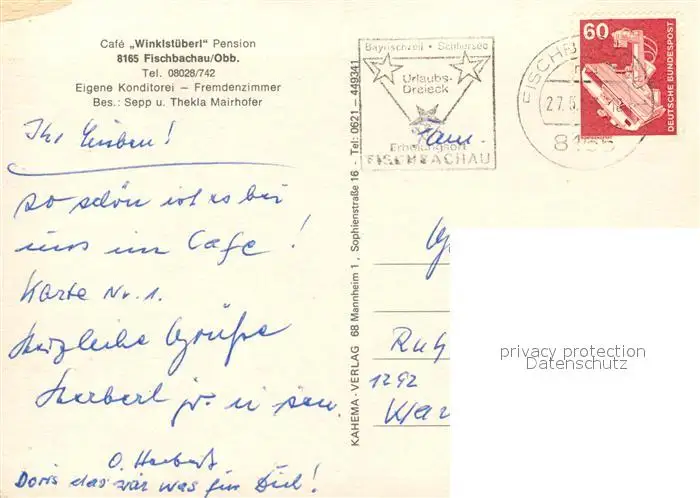 Café „Winklstüberl" Pension
8165 Fischbachau/Obb.
Tel. 08028/742
Eigene Konditorei — Fremdenzimmer
Bes.: Sepp u. Thekla Mairhofer
Ihr Lieben!
so schön ist es bei
uns im Cafe!
Karte Nr. 1.
Herzliche Grüße
Herbert jr. u sen.
O. Herbert
Doris das wär was für Dich!
KAHEMA-VERLAG 68 Mannheim 1, Sophienstraße 16 - Tel: 0621 — 449341
Bayrischzell • Schliersee
Urlaubs-
Dreieck
Fam.
Erholungsort
FISCHBACHAU
27.
8165
60
DEUTSCHE BUNDESPOST
1292
privacy protection
Datenschutz